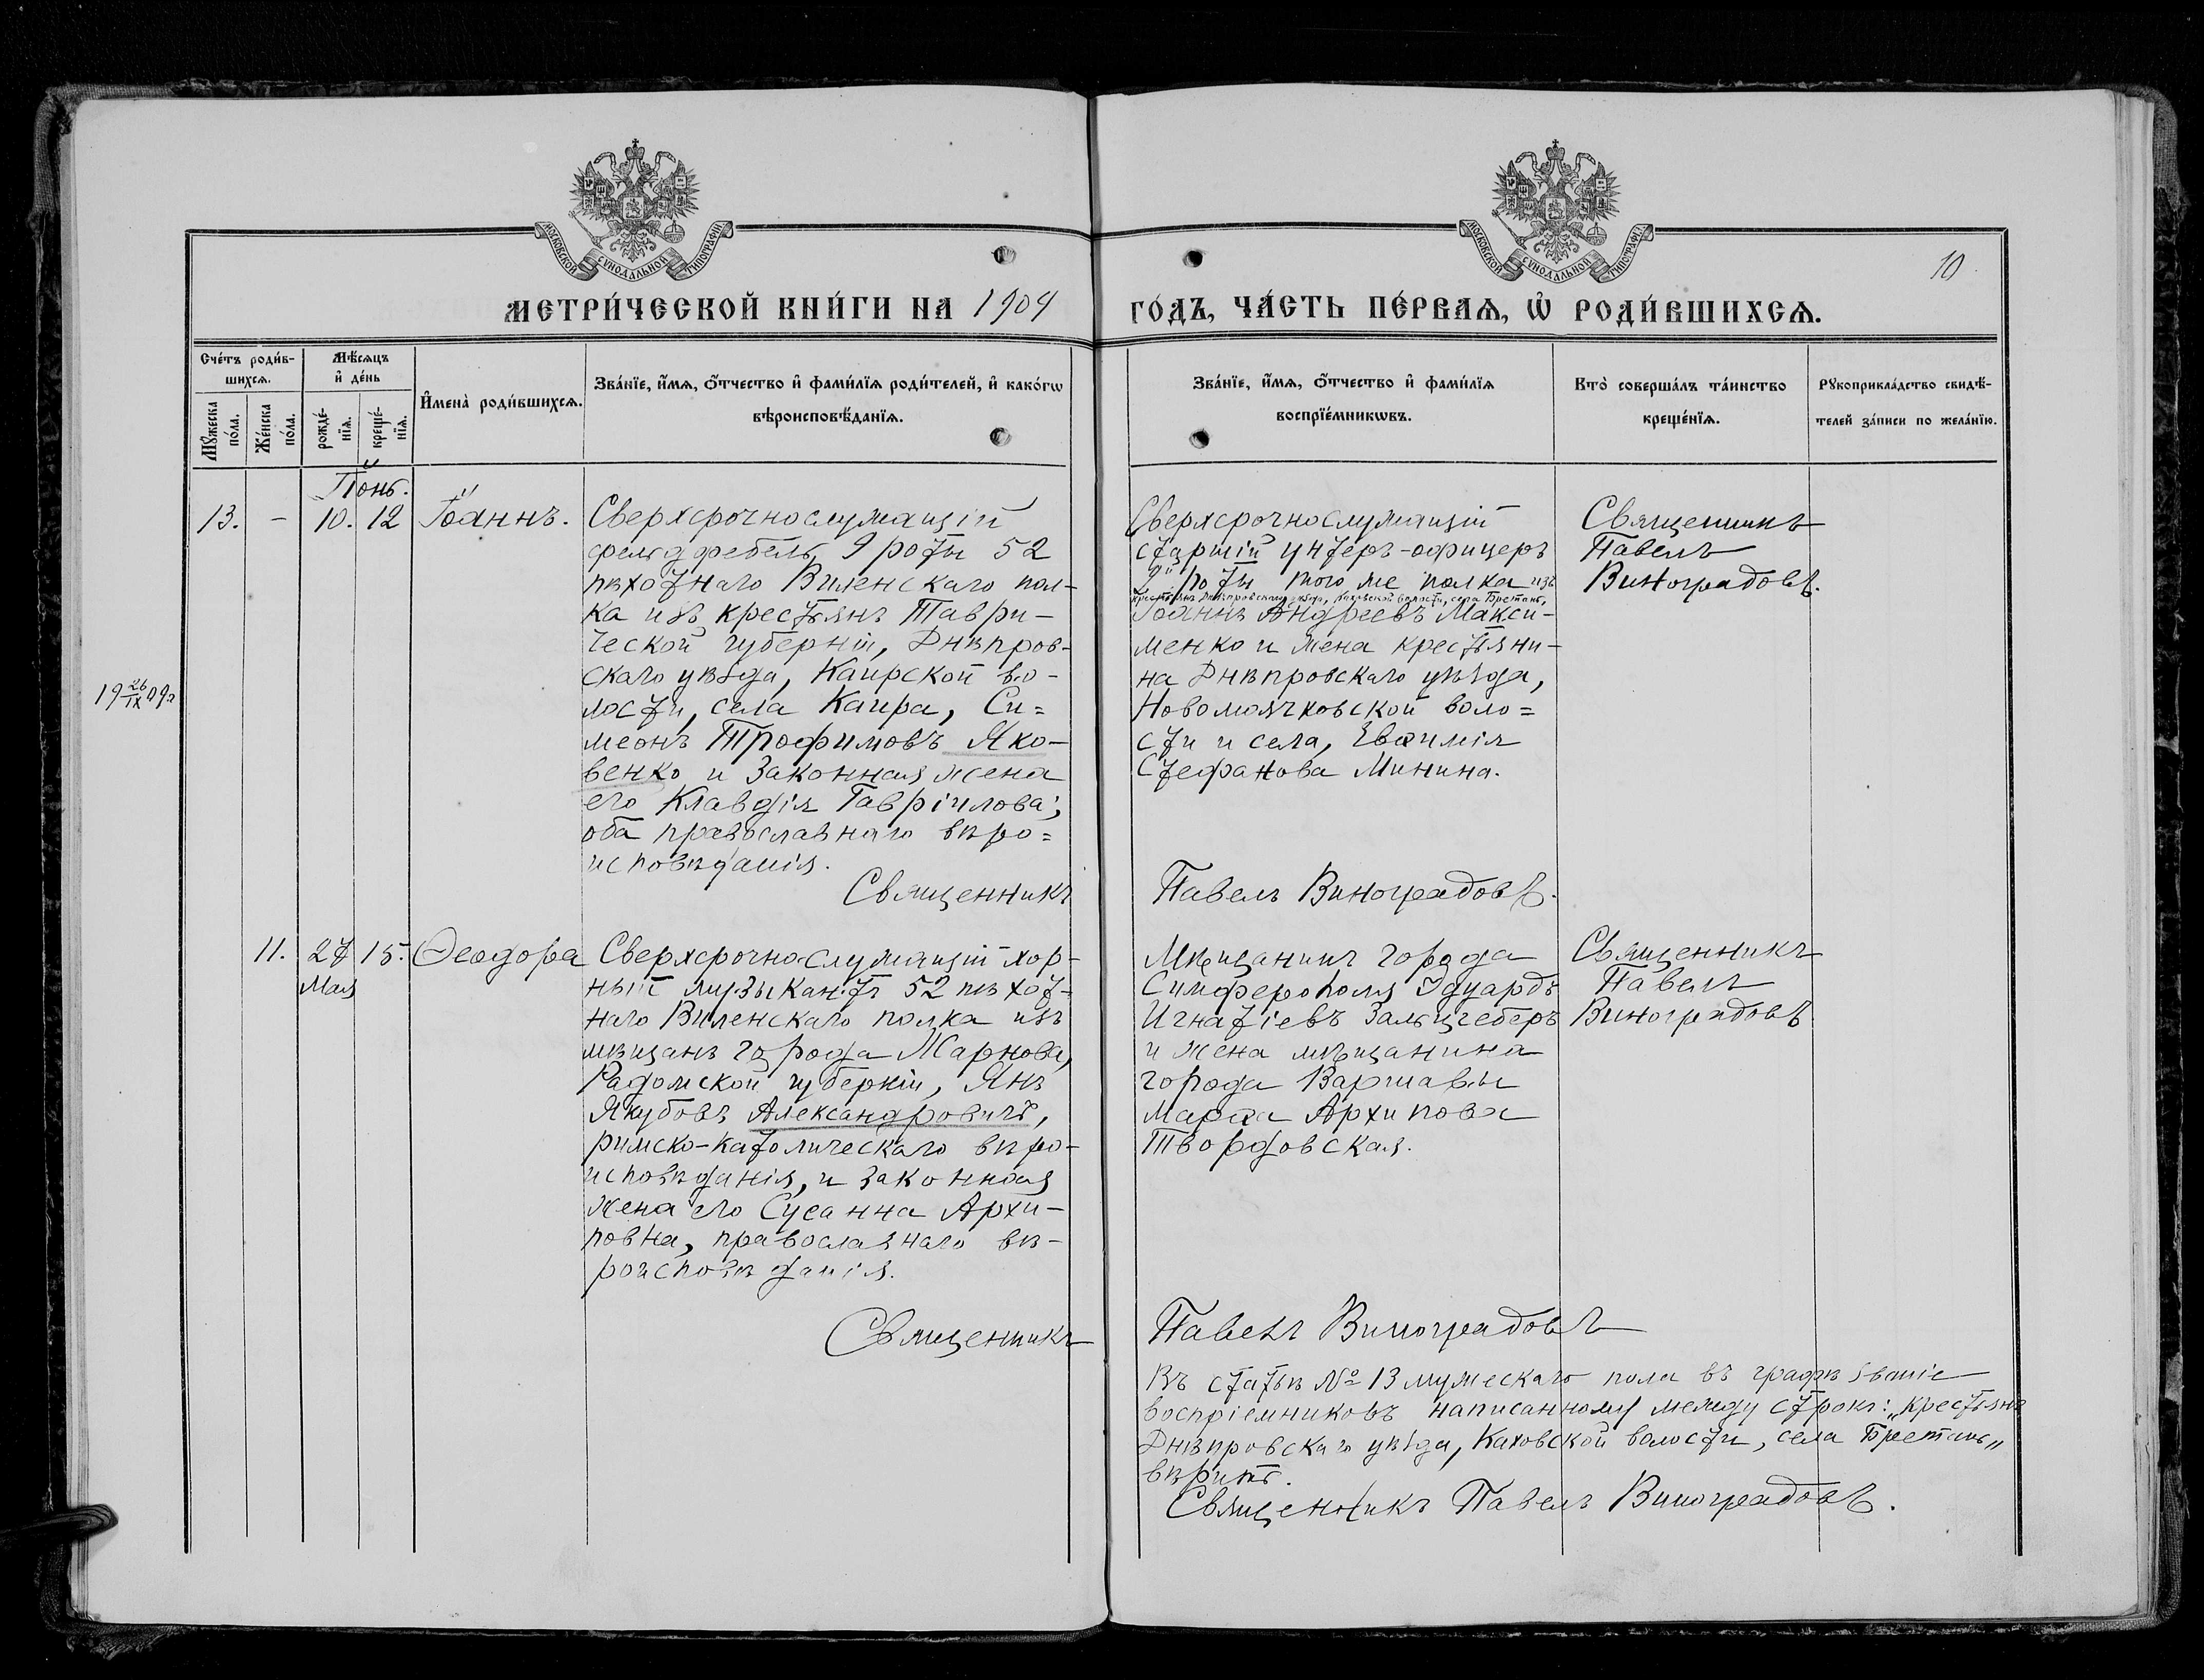 МОСКОВСКОЙ СУНОДАЛЬНОЙ ТИПОГРАФІИ
МОСКОВСКОЙ СУНОДАЛЬНОЙ ТИПОГРАФІИ
10.
МЕТРИ́ЧЕСКОЙ КНИ́ГИ НА 1904
ГО́ДЪ, ЧА́СТЬ ПЕ́РВАѦ, Ѡ҆ РОДИ́ВШИХСѦ.
Сче́тъ роди́в-
шихсѧ.
Мꙋ́жеска
по́ла.
Же́нска
по́ла.
Мѣ́сѧцъ
и҆ де́нь
рожде́-
нїѧ.
креще́-
нїѧ.
И҆мена̀ роди́вшихсѧ.
Зва́нїе, и҆́мѧ, ѻ҆́тчество и҆ фами́лїѧ роди́телей, и҆ како́гѡ
вѣроисповѣ́данїѧ.
Зва́нїе, и҆́мѧ, ѻ҆́тчество и҆ фами́лїѧ
воспрїе́мникѡвъ.
Кто̀ соверша́лъ та́инство
креще́нїѧ.
Рꙋкоприкла́дство свидѣ́-
телей за́писи по жела́нїю.
Іюнь.
13.
-
10.
12
Іоаннъ.
Сверхсрочнослужащій
фельдфебель 9 роты 52
пѣхотнаго Виленскаго пол-
ка изъ крестьянъ Таври-
ческой губерніи, Днѣпров-
скаго уѣзда, Каирской во-
лости, села Каира, Си=
меонъ Трофимовъ Яко-
венко и законная жена
его Клавдія Гавріилова;
оба православнаго вѣро=
исповѣданія.
Священникъ
19 26/IX 09 г.
Сверхсрочнослужащій
старшій унтеръ-офицеръ
9й роты того же полка изъ
крестьянъ Днѣпровскаго уѣзда, Каховской волости, села Бретань,
Іоаннъ Андреевъ Макси-
менко и жена крестьяни-
на Днѣпровскаго уѣзда,
Новомаячковской воло=
сти и села, Евѳимія
Стефанова Минина.
Павелъ Виноградовъ.
Священникъ
Павелъ
Виноградовъ.
11.
27
Мая
15.
Ѳеодора
Сверхсрочнослужащій хор-
ный музыкантъ 52 пѣхот-
наго Виленскаго полка изъ
мѣщанъ города Жарнова,
Радомской губерніи, Янъ
Якубовъ Александровичъ,
римско-католическаго вѣро-
исповѣданія, и законная
жена его Сусанна Архи-
повна, православнаго вѣ-
роисповѣданія.
Священникъ
Мѣщанинъ города
Симферополя Эдуардъ
Игнатіевъ Зальцгеберъ
и жена мѣщанина
города Варшавы
Марѳа Архипова
Твордовская.
Павелъ Виноградовъ
Священникъ
Павелъ
Виноградовъ
Въ статьѣ № 13 мужескаго пола въ графѣ званіе
воспріемниковъ написанному между строкъ: „крестьянъ
Днѣпровскаго уѣзда, Каховской волости, села Бретань„
вѣрить.
Священникъ Павелъ Виноградовъ.